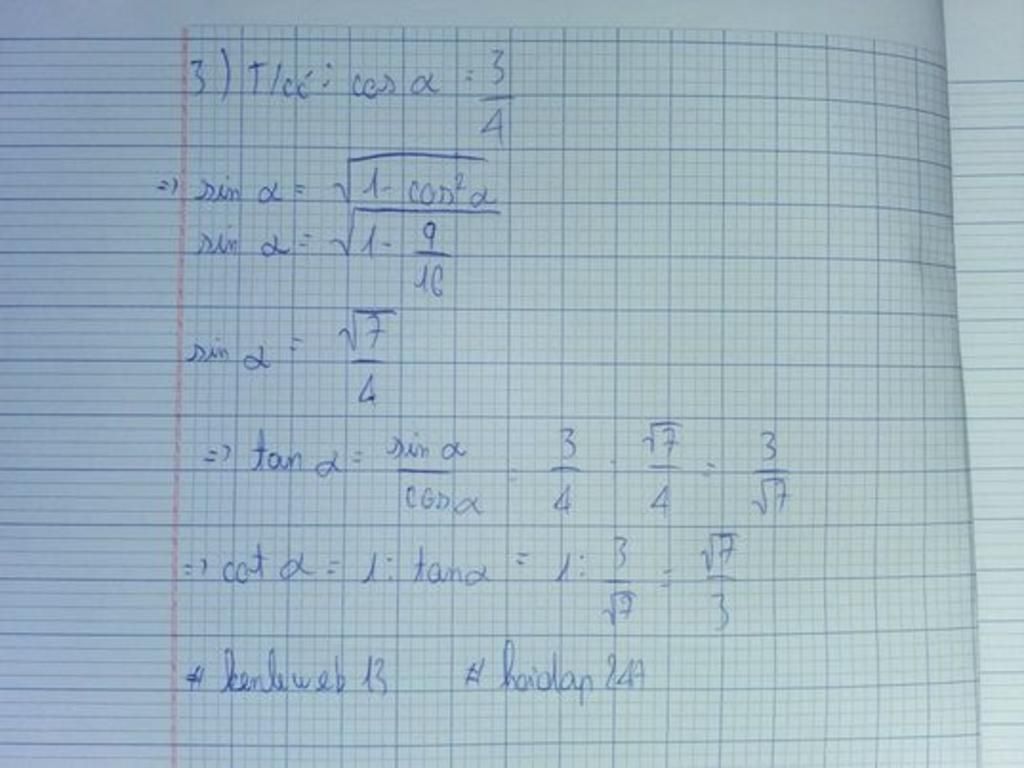 3) T/có: cos α = 3/4
=> sin α = √(1 - cos²α)
sin α = √(1 - 9/16)
sin α = √7/4
=> tan α = sin α/cos α = 3/4 : √7/4 = 3/√7
=> cot α = 1 : tan α = 1 : 3/√7 = √7/3
# hoidap 247